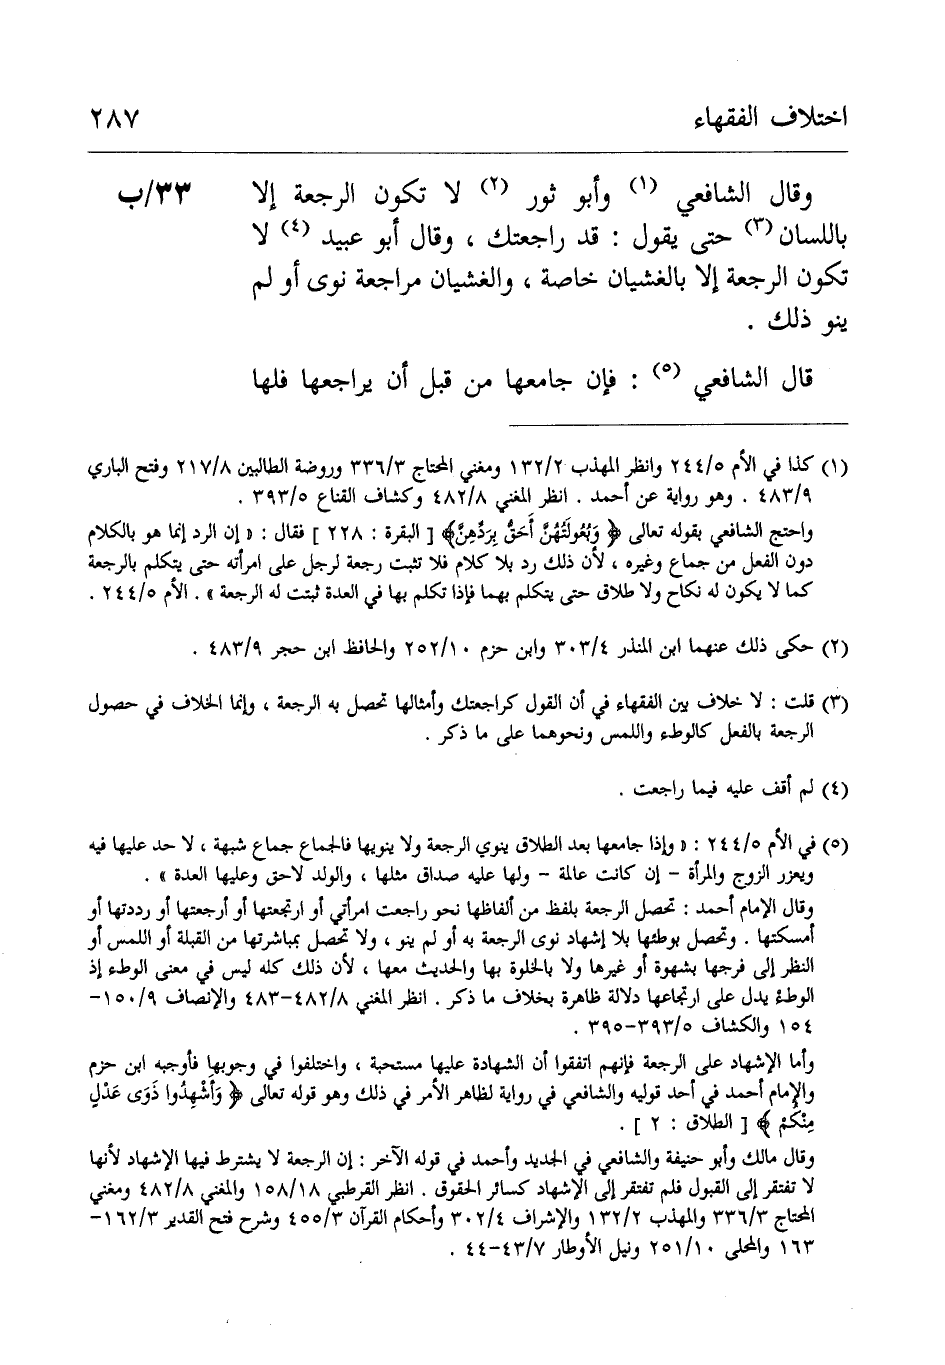 اختلاف الفقهاء ٢٨٧
وقال الشافعي (١) وأبو ثور (٢) لا تكون الرجعة إلا ٣٣/ب
باللسان (٣) حتى يقول : قد راجعتك ، وقال أبو عبيد (٤) لا
تكون الرجعة إلا بالغشيان خاصة ، والغشيان مراجعة نوى أو لم
ينو ذلك .
قال الشافعي (٥) : فإن جامعها من قبل أن يراجعها فلها
(١) كذا في الأم ٢٤٤/٥ وانظر المهذب ١٣٢/٢ ومغني المحتاج ٣٣٦/٣ وروضة الطالبين ٢١٧/٨ وفتح الباري
٤٨٣/٩ . وهو رواية عن أحمد . انظر المغني ٤٨٢/٨ وكشاف القناع ٣٩٣/٥ .
واحتج الشافعي بقوله تعالى ﴿ وَبُعُولَتُهُنَّ أَحَقُّ بِرَدِّهِنَّ﴾ [ البقرة : ٢٢٨ ] فقال : « إن الرد إنما هو بالكلام
دون الفعل من جماع وغيره ، لأن ذلك رد بلا كلام فلا تثبت رجعة لرجل على امرأته حتى يتكلم بالرجعة
كما لا يكون له نكاح ولا طلاق حتى يتكلم بهما فإذا تكلم بها في العدة ثبتت له الرجعة » . الأم ٢٤٤/٥ .
(٢) حكى ذلك عنهما ابن المنذر ٣٠٣/٤ وابن حزم ٢٥٢/١٠ والحافظ ابن حجر ٤٨٣/٩ .
(٣) قلت : لا خلاف بين الفقهاء في أن القول كراجعتك وأمثالها تحصل به الرجعة ، وإنما الخلاف في حصول
الرجعة بالفعل كالوطء واللمس ونحوهما على ما ذكر .
(٤) لم أقف عليه فيما راجعت .
(٥) في الأم ٢٤٤/٥ : « وإذا جامعها بعد الطلاق ينوي الرجعة ولا ينويها فالجماع جماع شبهة ، لا حد عليها فيه
ويعزر الزوج والمرأة - إن كانت عالمة - ولها عليه صداق مثلها ، والولد لاحق وعليها العدة » .
وقال الإمام أحمد : تحصل الرجعة بلفظ من ألفاظها نحو راجعت امرأتي أو ارتجعتها أو أرجعتها أو رددتها أو
أمسكتها . وتحصل بوطئها بلا إشهاد نوى الرجعة به أو لم ينو ، ولا تحصل بمباشرتها من القبلة أو اللمس أو
النظر إلى فرجها بشهوة أو غيرها ولا بالخلوة بها والحديث معها ، لأن ذلك كله ليس في معنى الوطء إذ
الوطء يدل على ارتجاعها دلالة ظاهرة بخلاف ما ذكر . انظر المغني ٤٨٢/٨-٤٨٣ والإنصاف ١٥٠/٩-
١٥٤ والكشاف ٣٩٣/٥-٣٩٥ .
وأما الإشهاد على الرجعة فإنهم اتفقوا أن الشهادة عليها مستحبة ، واختلفوا في وجوبها فأوجبه ابن حزم
والإمام أحمد في أحد قوليه والشافعي في رواية لظاهر الأمر في ذلك وهو قوله تعالى ﴿ وَأَشْهِدُوا ذَوَى عَدْلٍ
مِنْكُمْ ﴾ [ الطلاق : ٢ ] .
وقال مالك وأبو حنيفة والشافعي في الجديد وأحمد في قوله الآخر : إن الرجعة لا يشترط فيها الإشهاد لأنها
لا تفتقر إلى القبول فلم تفتقر إلى الإشهاد كسائر الحقوق . انظر القرطبي ١٥٨/١٨ والمغني ٤٨٢/٨ ومغني
المحتاج ٣٣٦/٣ والمهذب ١٣٢/٢ والإشراف ٣٠٢/٤ وأحكام القرآن ٤٥٥/٣ وشرح فتح القدير ١٦٢/٣-
١٦٣ والمحلى ٢٥١/١٠ ونيل الأوطار ٤٣/٧-٤٤ .